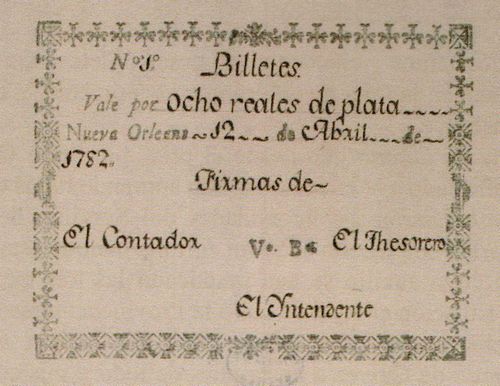 Nº 1º Billetes.
Vale por Ocho reales de plata
Nueva Orleans 12 de Abril de
1782.
Firmas de
El Contador Vº Bº El Thesorero
El Yntendente